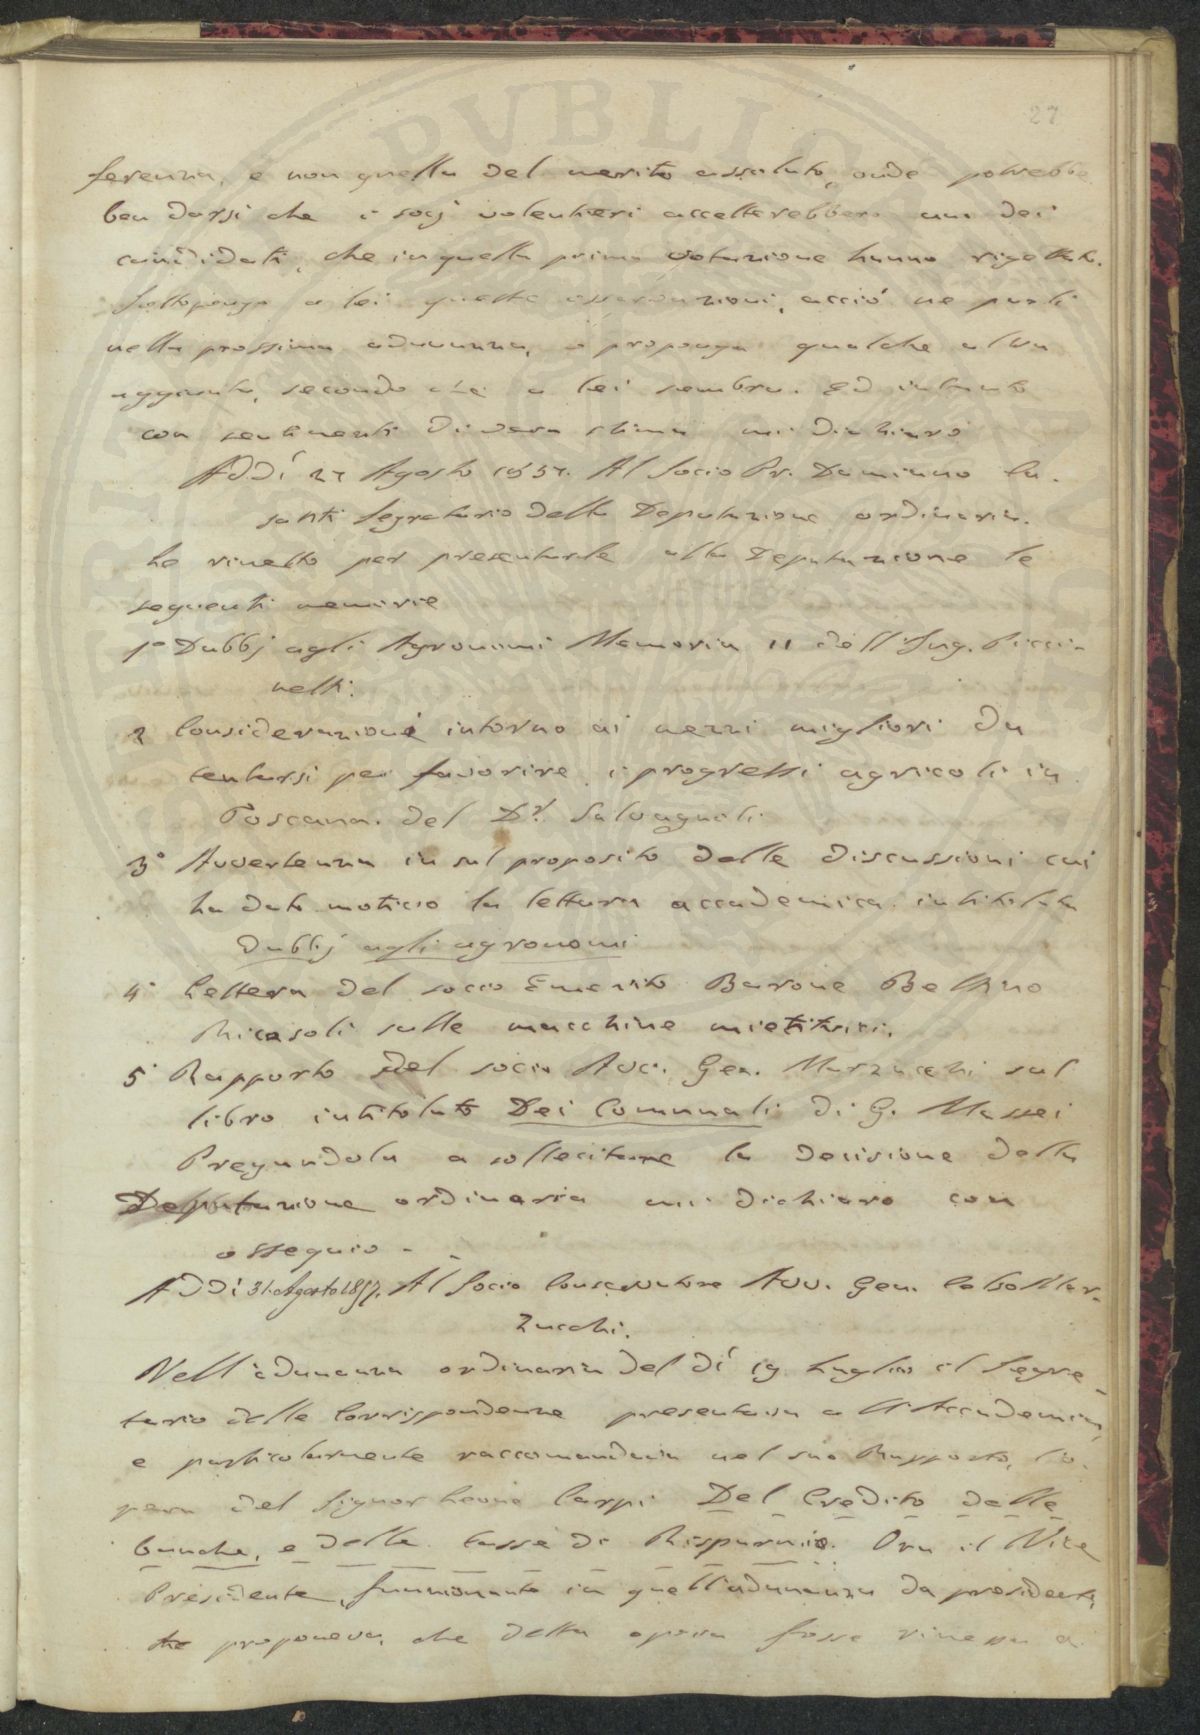 27
ferenza, e non quella del merito assoluto, onde potrebbe
ben darsi che i socj volentieri accetterebbero uno dei
candidati, che in quella prima votazione hanno rigettato.
Sottopongo a lei queste osservazioni, acciò ne parli
nella prossima adunanza, o proponga qualche altra
aggiunta, secondo che a lei sembra. Ed intanto
con sentimenti di vera stima mi dichiaro
Addì 27 Agosto 1857. Al Socio Pr. Damiano Ca-
santi Segretario della Deputazione ordinaria.
Le rimetto per presentarle alla Deputazione le
seguenti memorie
1º Dubbj agli Agronomi Memoria II dell'Ing. Picci-
nelli.
2 Considerazioni intorno ai mezzi migliori da
tentarsi per favorire i progressi agricoli in
Toscana. del Dr. Salvagnoli
3º Avvertenza in sul proposito delle discussioni cui
ha dato motivo la lettura accademica intitolata
Dubbj agli agronomi
4º Lettera del socio Emerito Barone Bettino
Ricasoli sulle macchine mietitrici.
5º Rapporto del socio Avv. Gen. Marzucchi sul
libro intitolato Dei Comunali di G. Massei
Pregandola a sollecitare la decisione della
Deputazione ordinaria mi dichiaro con
ossequio - -
Addì 31. Agosto 1857. Al Socio Conservatore Avv. Gen. Celso Mar-
zucchi.
Nell'adunanza ordinaria del dì 19 Luglio il Segre-
tario delle Corrispondenze presentava all'Accademia,
e particolarmente raccomandava nel suo Rapporto, l'o-
pera del Signor Leone Carpi Del Credito delle
banche, e delle casse di Risparmio. Ora il Vice
Presidente, funzionante in quell'adunanza da presidente,
proponeva, che detta opera fosse rimessa a